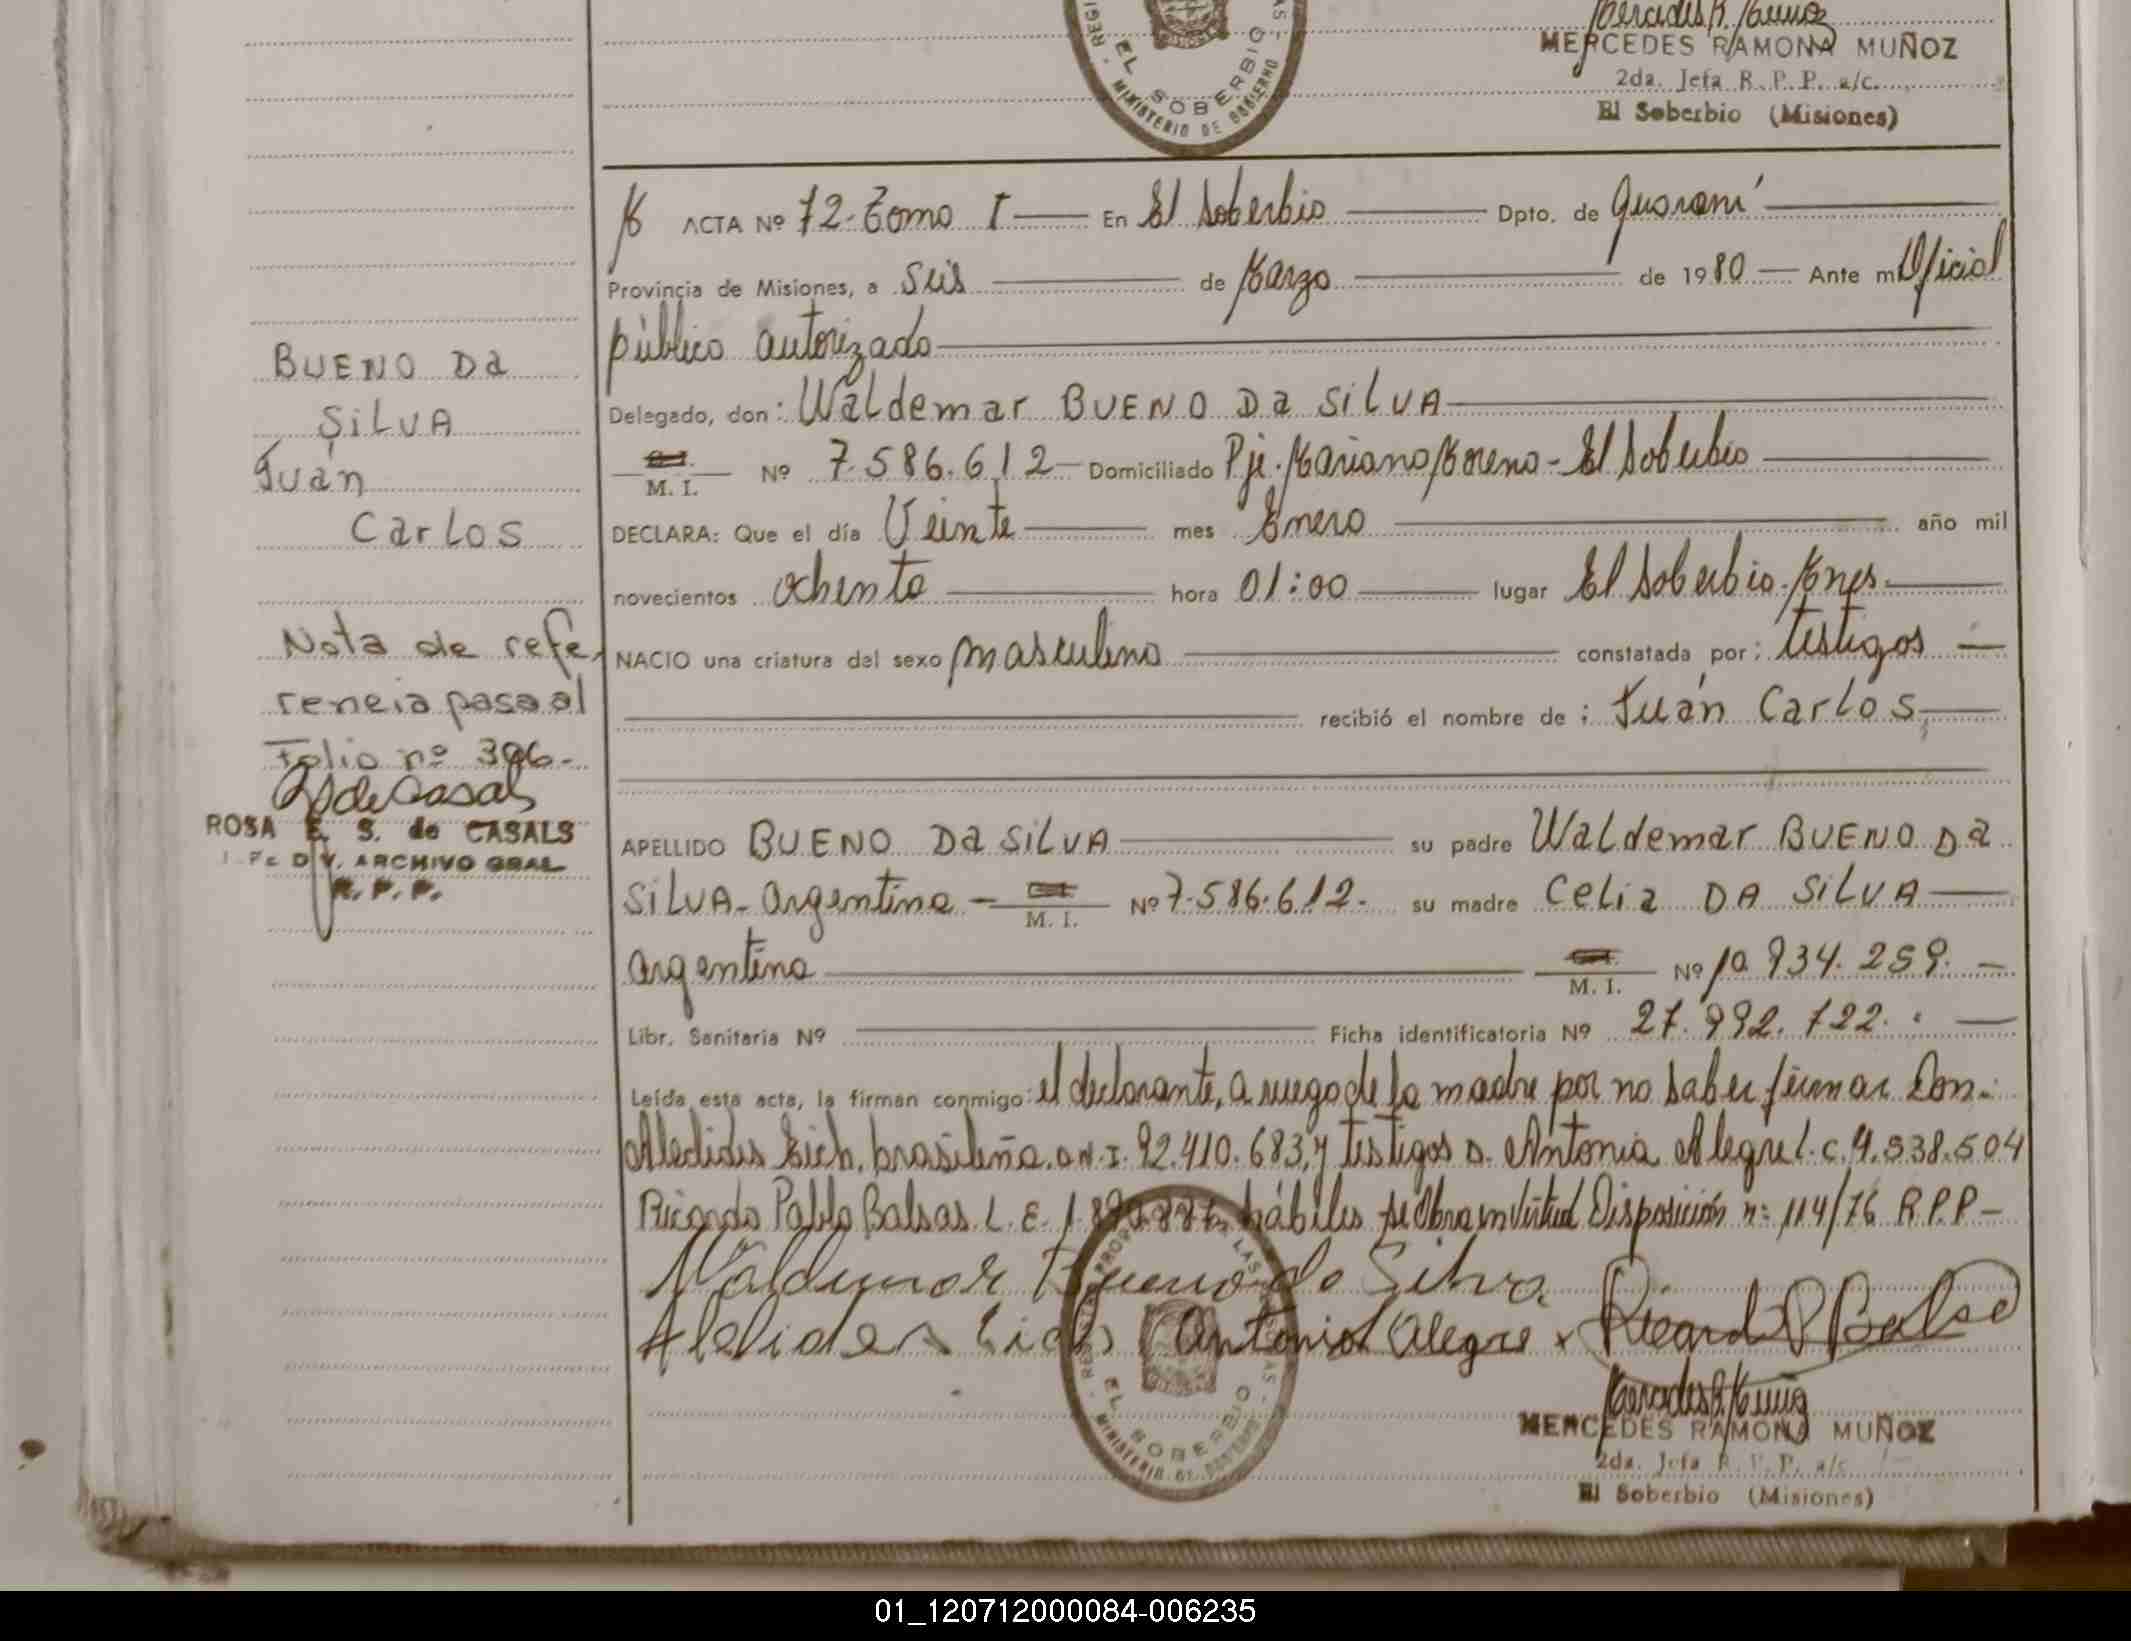 MERCEDES RAMONA MUÑOZ
2da. Jefa R. P. P. a/c.
El Soberbio (Misiones)
EL SOBERBIO
MINISTERIO DE GOBIERNO
ACTA Nº 72 - Tomo I En El Soberbio Dpto. de Guaraní
Provincia de Misiones, a Seis de Marzo de 1980 Ante mí Oficial
público autorizado
Delegado, don: Waldemar BUENO Da SiLVA
M. I. Nº 7.586.612 Domiciliado Pje. Mariano Moreno - El Soberbio
DECLARA: Que el día Veinte mes Enero año mil
novecientos ochenta hora 01:00 lugar El Soberbio. Mnes.
NACIO una criatura del sexo masculino constatada por: testigos
recibió el nombre de: Juán Carlos
APELLIDO BUENO Da SiLVA su padre Waldemar BUENO Da
SiLVA - argentino - M. I. Nº 7.586.612. su madre Celia DA SiLVA
argentina M. I. Nº 10.934.259.
Libr. Sanitaria Nº Ficha identificatoria Nº 27.992.722.
Leída esta acta, la firman conmigo: el declarante, a ruego de la madre por no saber firmar Don
brasileña. D.N.I. 92.410.683, y testigos D. Antonia Alegre L.C. 4.538.504
Ricardo Pablo Balsas L. E. hábiles se obra en virtud Disposición nº 114/76 R.P.P -
Waldemar Bueno da Silva
Antonia Alegre Ricardo P Balsa
MERCEDES RAMONA MUÑOZ
2da. Jefa R. P. P. a/c
El Soberbio (Misiones)
EL SOBERBIO
MINISTERIO DE GOBIERNO
BUENO Da
SiLVA
Juán
Carlos
Nota de refe
rencia pasa al
Folio nº 396.-
ROSA E. S. de CASALS
DIV. ARCHIVO GRAL
R. P. P.
01_120712000084-006235